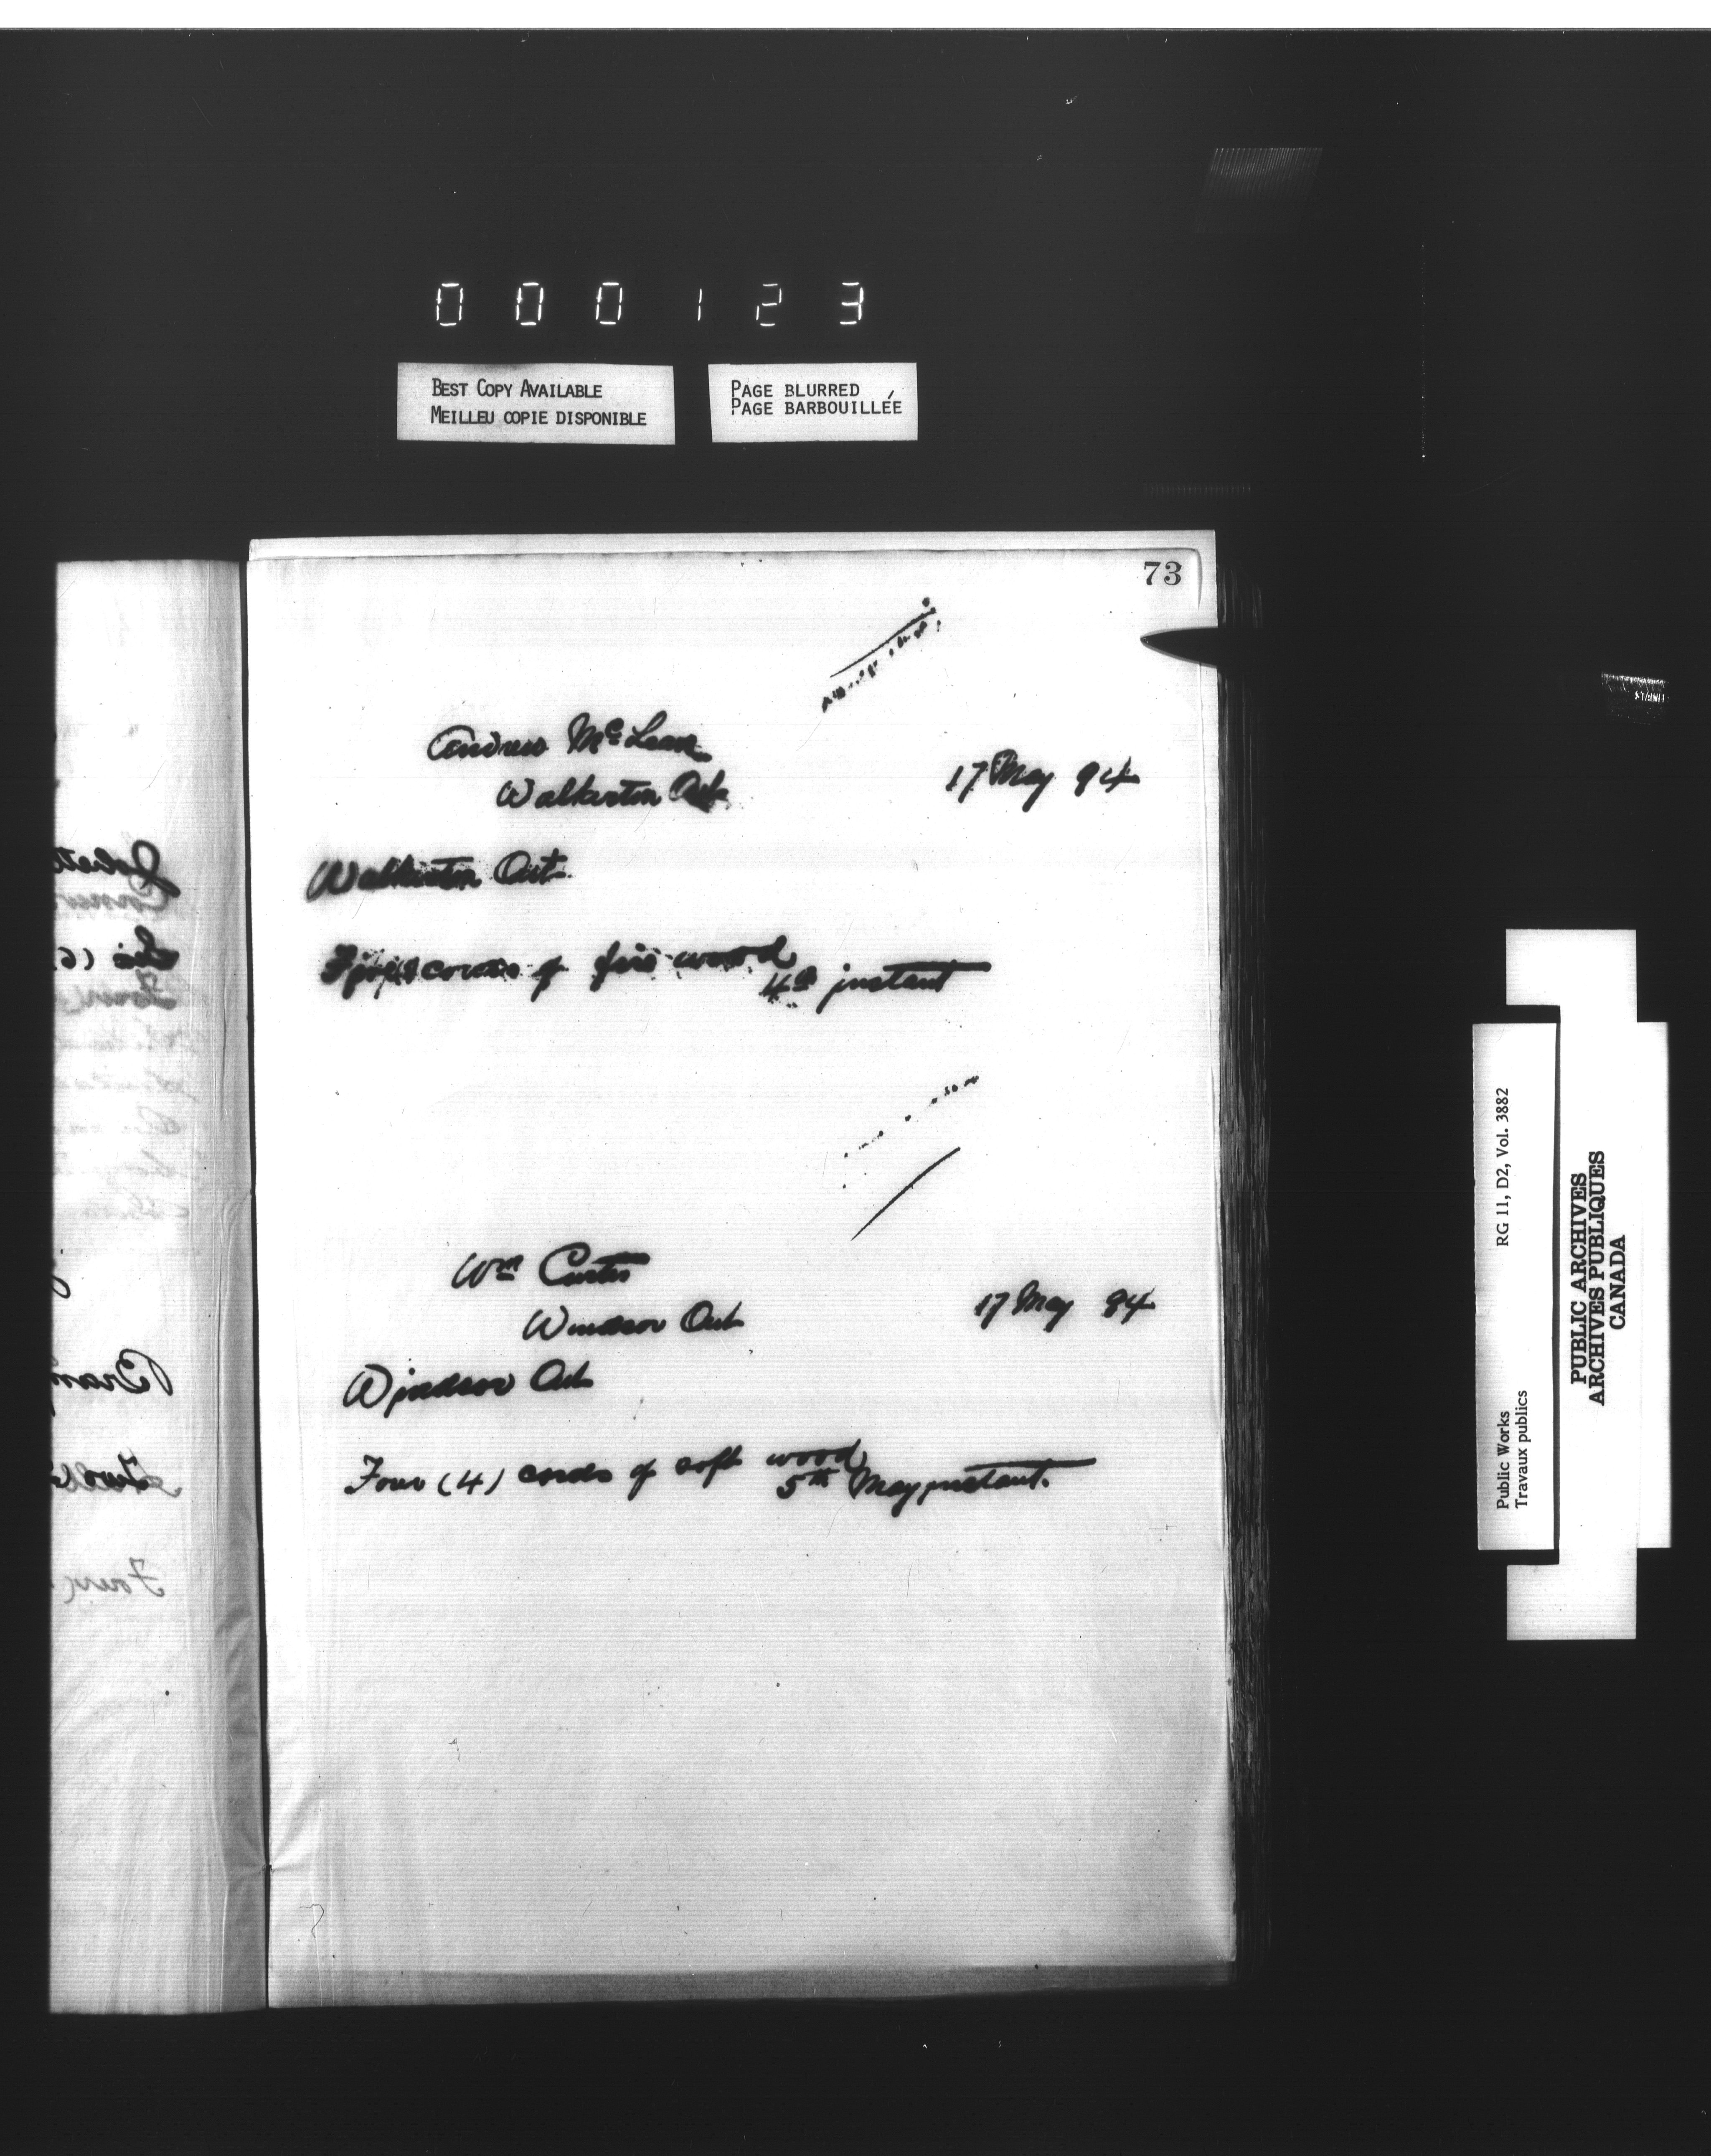 000123
BEST COPY AVAILABLE
MEILLEU COPIE DISPONIBLE
PAGE BLURRED
PAGE BARBOUILLÉE
73
Andrew Mc Lean
Walkerton Ont
17 May 94
Walkerton Ont
cords of fire wood
4th instant
Wm Curtis
Windsor Ont
17 May 94
Windsor Ont
Four (4) cords of soft wood
5th May instant.
Public Works
Travaux publics
RG 11, D2, Vol. 3882
PUBLIC ARCHIVES
ARCHIVES PUBLIQUES
CANADA